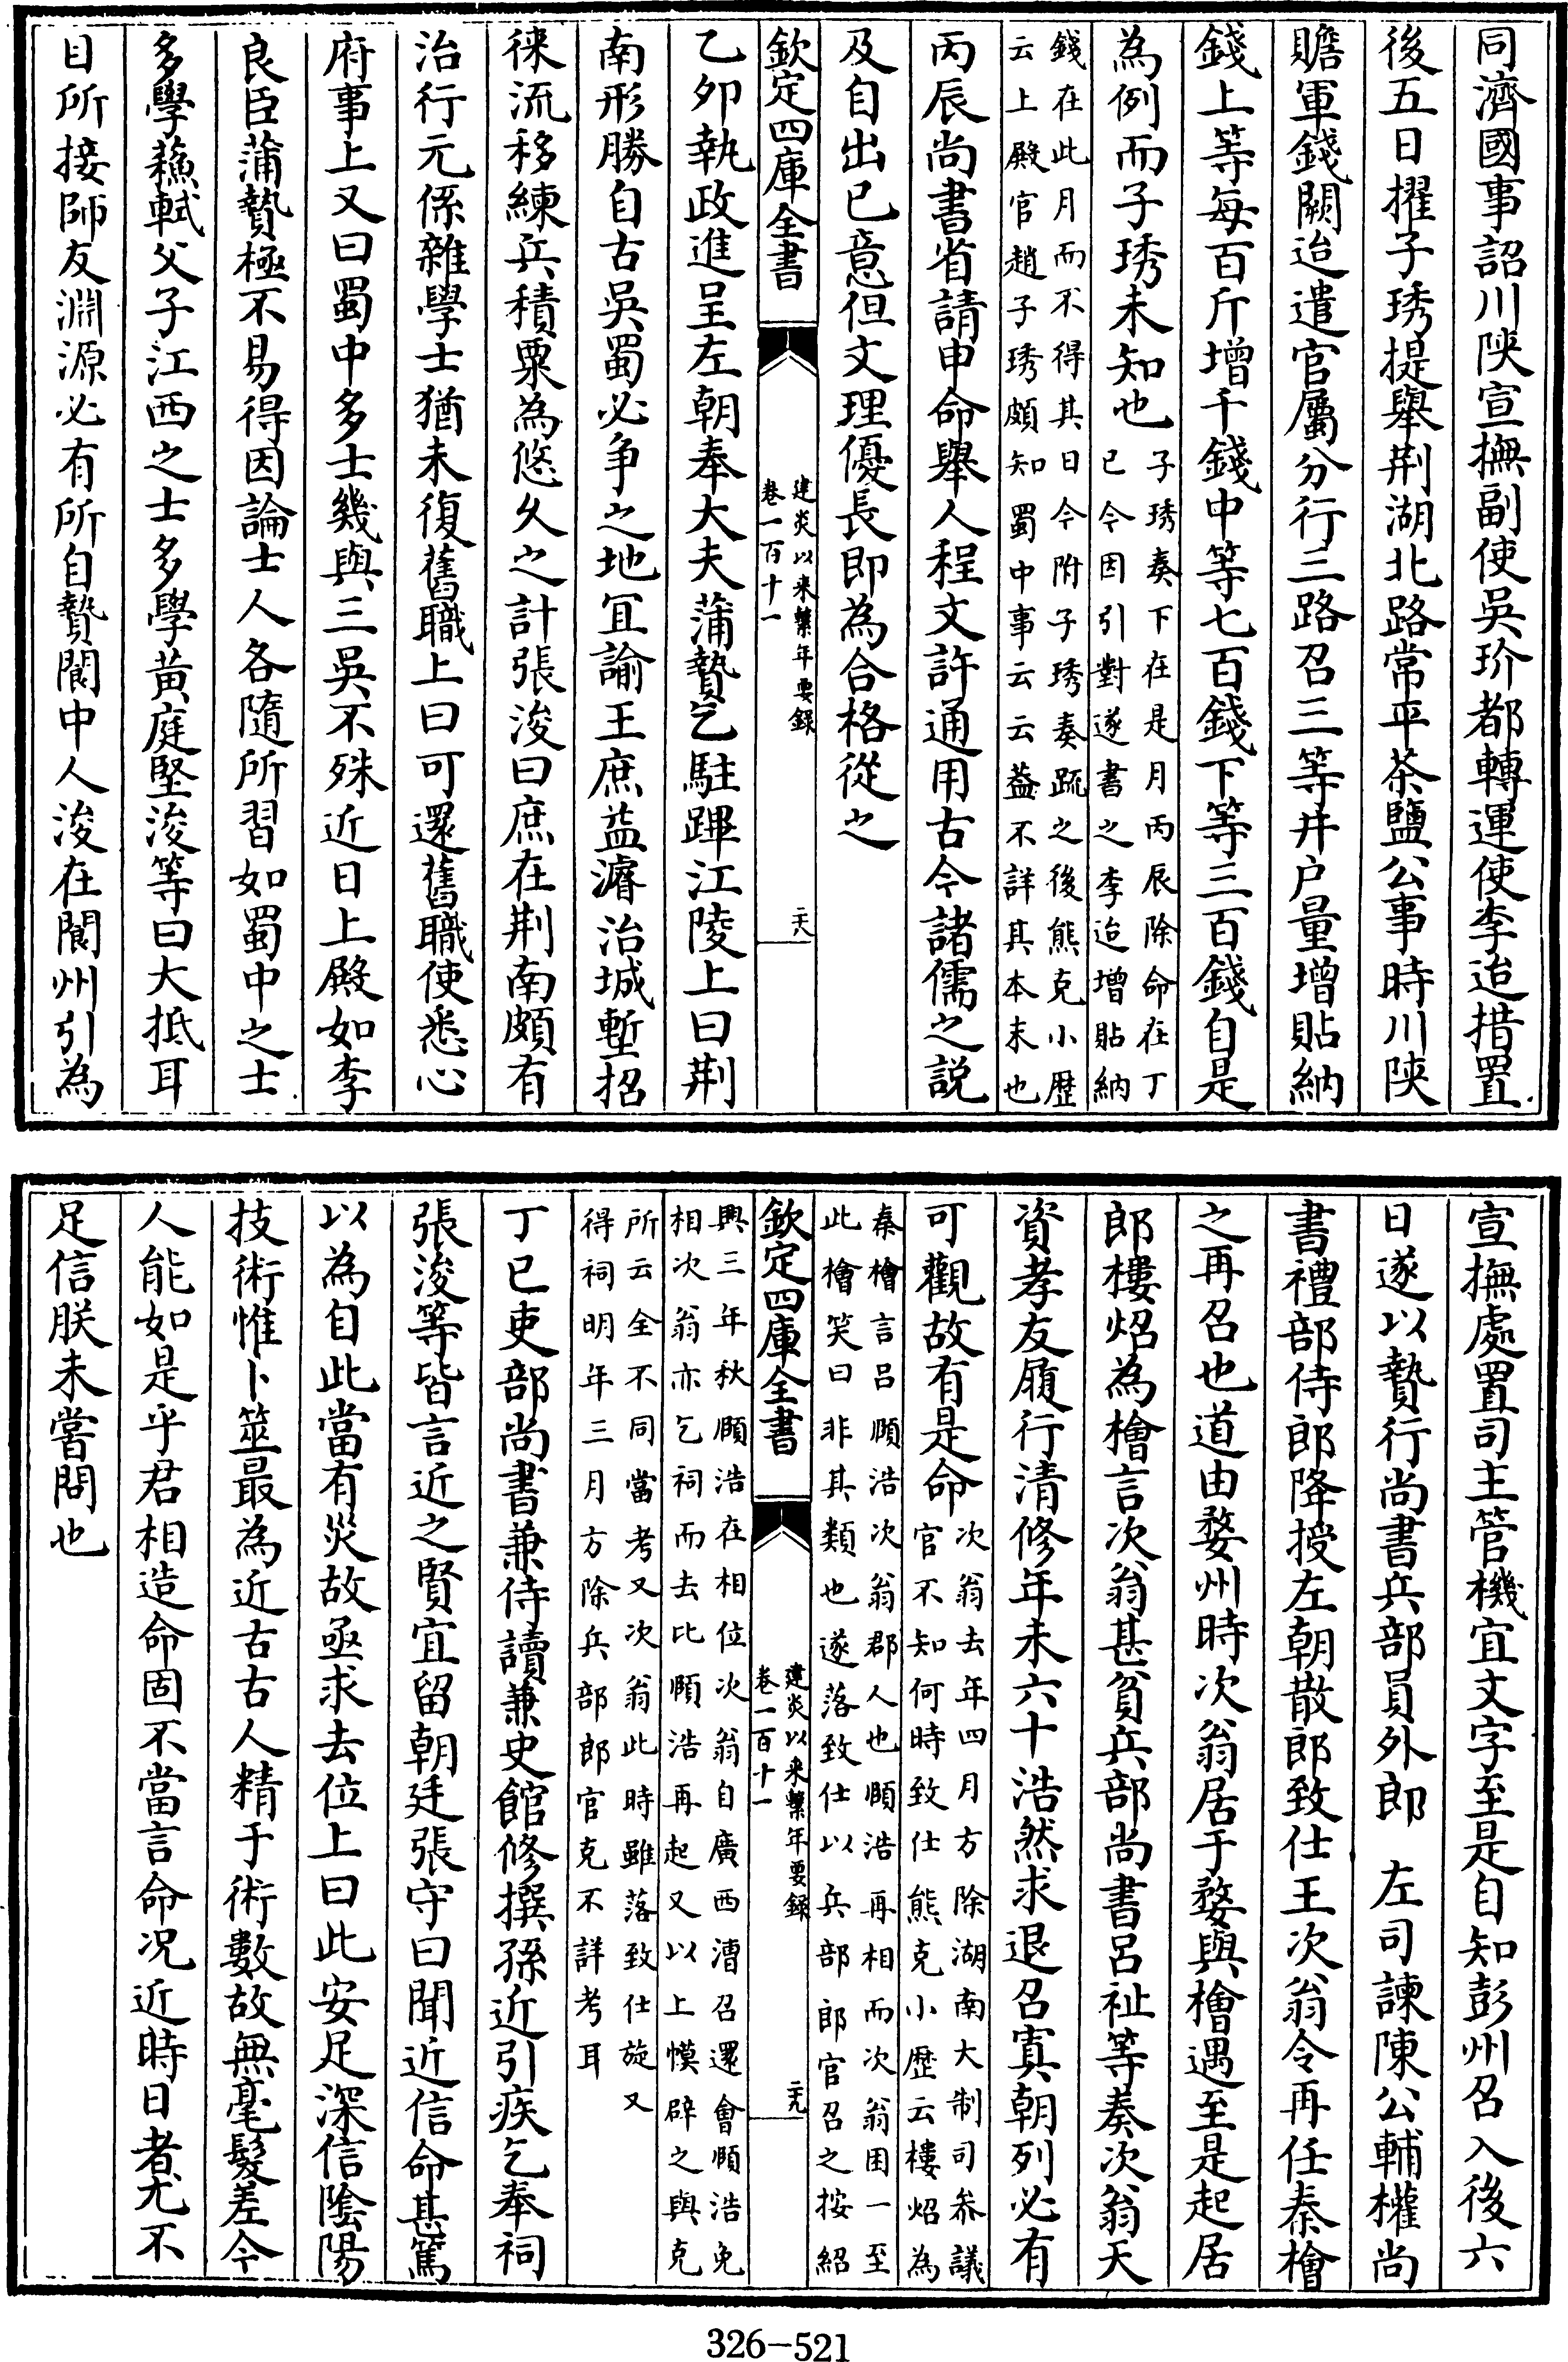 同濟國事詔川陝宣撫副使吳玠都轉運使李迨措置
後五日擢子琇提舉荆湖北路常平茶鹽公事時川陝
贍軍錢闕迨遣官屬分行三路召三等井户量增貼納
錢上等每百斤增千錢中等七百錢下等三百錢自是
為例而子琇未知也子琇奏下在是月丙辰除命在丁
巳今因引對遂書之李迨增貼納
錢在此月而不得其日今附子琇奏疏之後熊克小歴
云上殿官趙子琇頗知蜀中事云云葢不詳其本末也
丙辰尚書省請申命舉人程文許通用古今諸儒之説
及自出已意但文理優長即為合格從之
欽定四庫全書
建炎以來繫年要録
卷一百十一
二六
乙夘執政進呈左朝奉大夫蒲贄乞駐蹕江陵上曰荆
南形勝自古吳蜀必争之地宜諭王庶益濬治城塹招
徠流移練兵積粟為悠久之計張浚曰庶在荆南頗有
治行元係雜學士猶未復舊職上曰可還舊職使悉心
府事上又曰蜀中多士幾與三吳不殊近日上殿如李
良臣蒲贄極不易得因論士人各隨所習如蜀中之士
多學蘇軾父子江西之士多學黄庭堅浚等曰大抵耳
目所接師友淵源必有所自贄閬中人浚在閬州引為
宣撫處置司主管機宜文字至是自知彭州召入後六
日遂以贄行尚書兵部員外郎　左司諫陳公輔權尚
書禮部侍郎降授左朝散郎致仕王次翁令再任秦檜
之再召也道由婺州時次翁居于婺與檜遇至是起居
郎樓炤為檜言次翁甚貧兵部尚書呂祉等奏次翁天
資孝友履行清修年未六十浩然求退召寘朝列必有
可觀故有是命次翁去年四月方除湖南大制司叅議
官不知何時致仕熊克小歴云樓炤為
秦檜言呂頤浩次翁郡人也頤浩再相而次翁困一至
此檜笑曰非其類也遂落致仕以兵部郎官召之按紹
興三年秋頤浩在相位次翁自廣西漕召還會頤浩免
相次翁亦乞祠而去比頤浩再起又以上㡒辟之與克
所云全不同當考又次翁此時雖落致仕旋又
得祠明年三月方除兵部郎官克不詳考耳
欽定四庫全書
建炎以來繫年要録
卷一百十一
二九
丁巳吏部尚書兼侍讀兼史館修撰孫近引疾乞奉祠
張浚等皆言近之賢宜留朝廷張守曰聞近信命甚篤
以為自此當有災故亟求去位上曰此安足深信隂陽
技術惟卜筮最為近古古人精于術數故無毫髮差今
人能如是乎君相造命固不當言命况近時日者尤不
足信朕未嘗問也
326-521